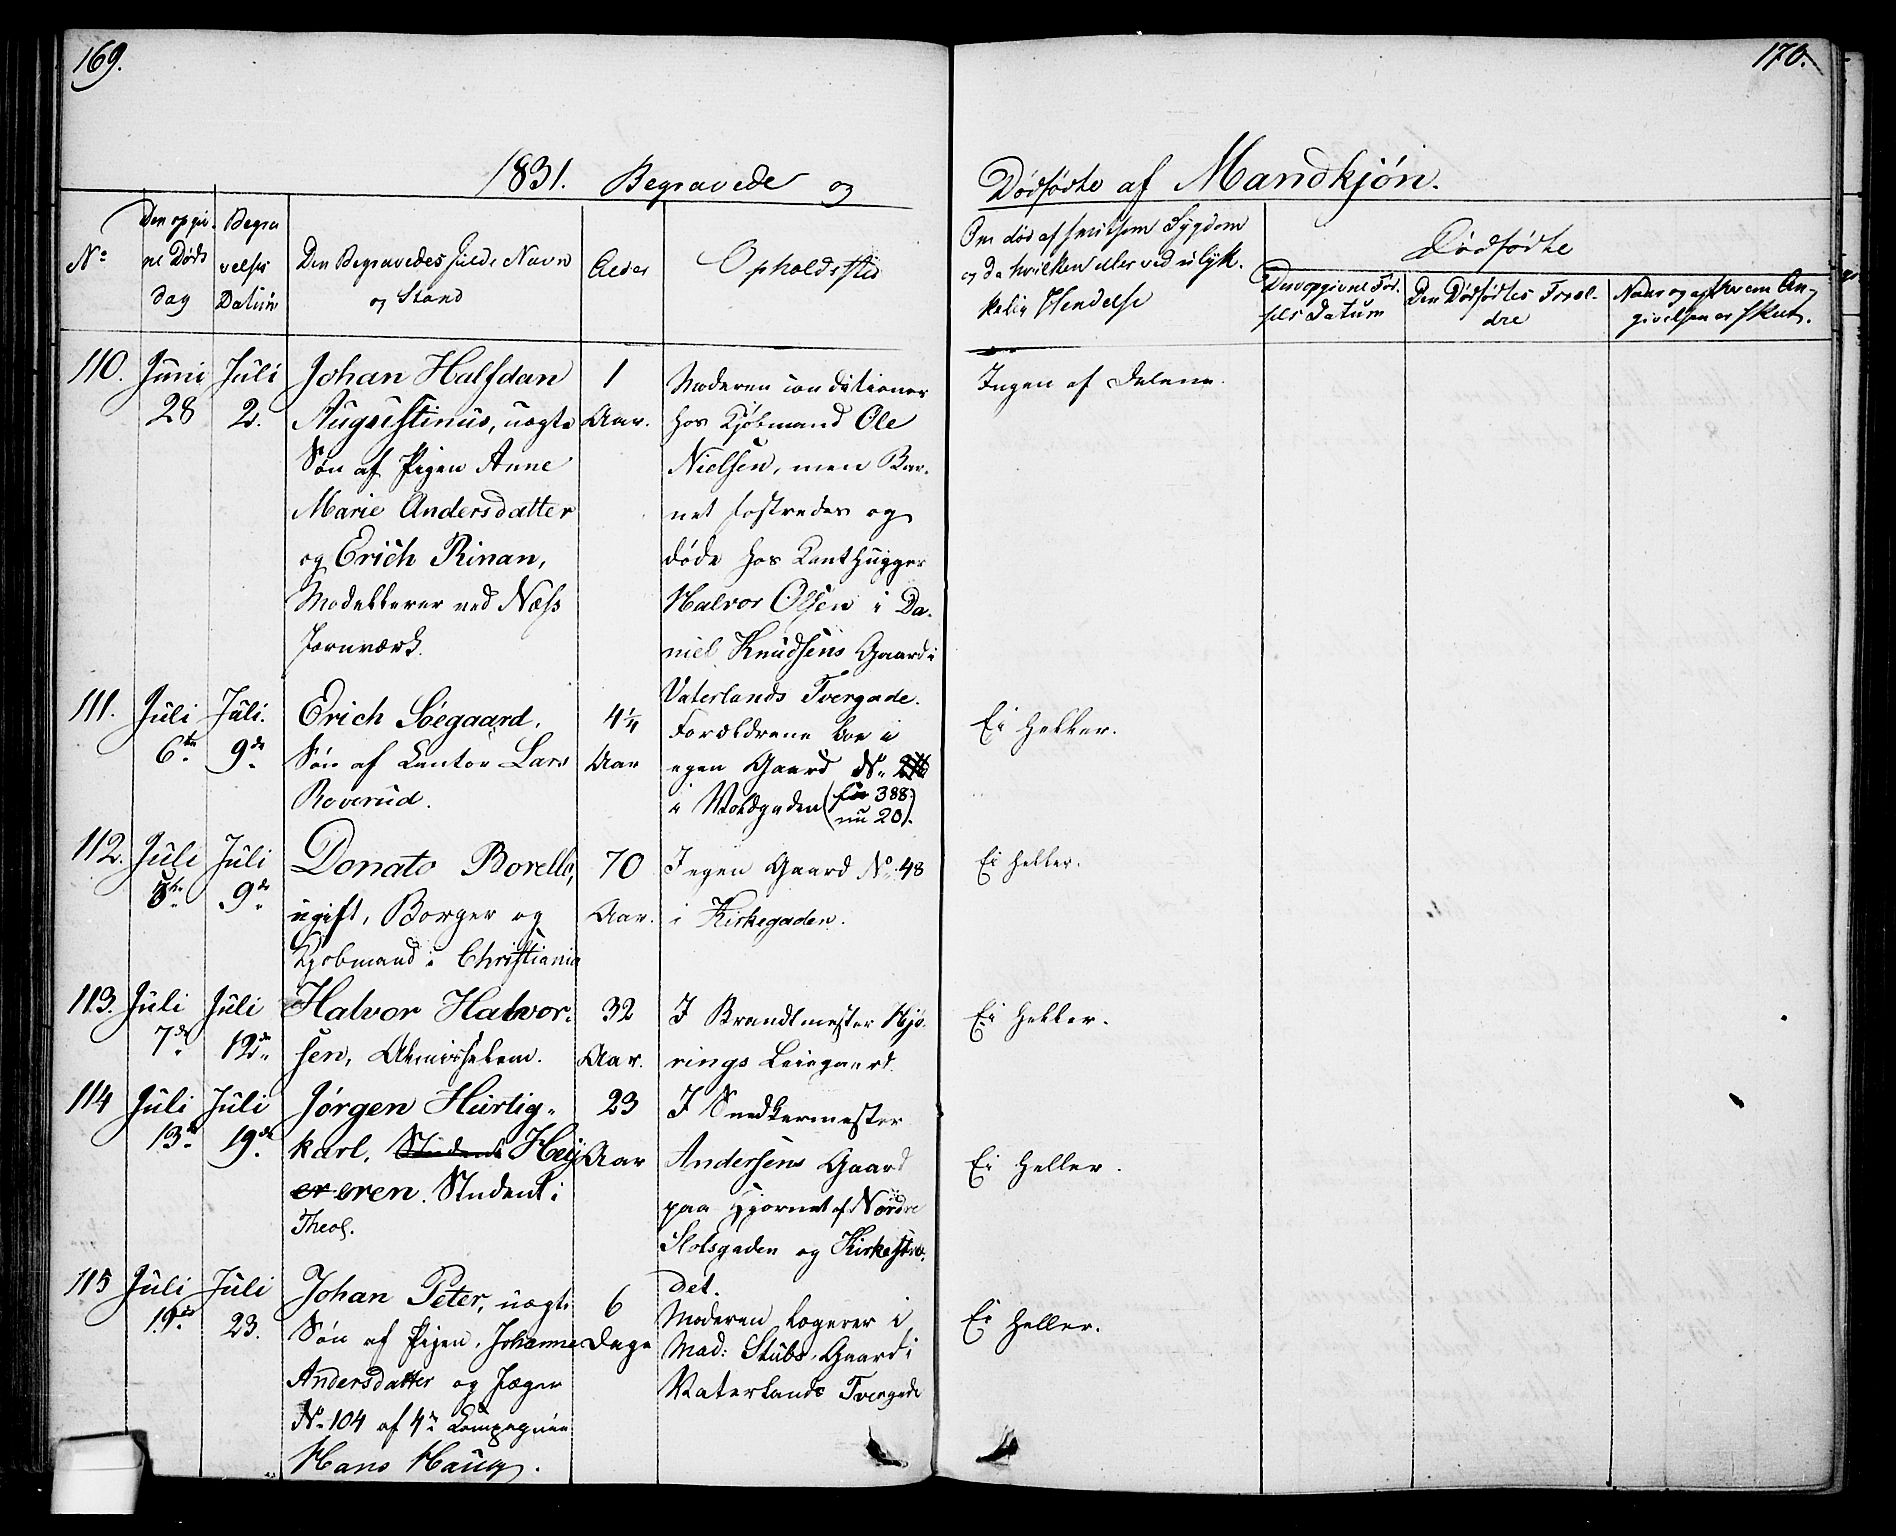 169.
1831. Begravede og
No
Den opgivne Døds dag
Begravelses Datum
Den Begravedes fulde Navn
og Stand
Alder
Opholdssted
110.
Juni
28
Juli
2.
Johan Halfdan
Augustinus, uægte
Søn af Pigen Anne
Marie Andersdatter
og Erich Rinan,
Modellerer ved Næss
Jernværk.
1
Aar.
Moderen conditionerer
hos Kjøbmand Ole
Nielsen, men Bar-
net fostredes og
døde hos Kanthugger
Halvor Olsen i Da-
niel Knudsens Gaard i
Vaterlands Tvergade.
111.
Juli
6te
Juli.
9de
Erich Søegaard,
Søn af Kantor Lars
Roverud.
4¼
Aar
Forældrene boe i
egen Gaard No
i Voldgaden (før 388.
nu 20).
112.
Juli
Juli
9de
Donato Borello,
ugift, Borger og
Kjøbmand i Christiania
70
Aar.
I egen Gaard No 48
i Kirkegaden.
113.
Juli
7de
Juli
12de
Halvor Halvor-
sen, Almisselem.
32
Aar.
I Brandtmester Hjø-
rings Leiegaard.
114
Juli
13de
Juli
19de
Jørgen Hurtig-
karl, Student Heij
er eren. Student i
Theol.
23
Aar
I Snedkermester
Andersens Gaard
paa Hjørnet af Nordre
Slotsgaden og Kirkestræ-
det.
115
Juli
19de
Juli
23.
Johan Peter, uægte
Søn af Pigen Johanne
Andersdatter og Jæger
No 104 af 4de Compagnie
Hans Haug.
6
Dage
Moderen logerer i
Mad: Stubs Gaard i
Vaterlands Tvergade
170.
Dødfødte af Mandkjøn.
Om død af smitsom Sygdom
og da hvilken eller ved ulyk-
kelig Hendelse
Dødfødte
Den opgivne Fød-
sels Datum
Den Dødfødtes Foræl-
dre
Naar og af hvem An-
givelsen er skeet.
Ingen af Delene.
Ei heller.
Ei heller.
Ei heller.
Ei heller.
Ei heller.